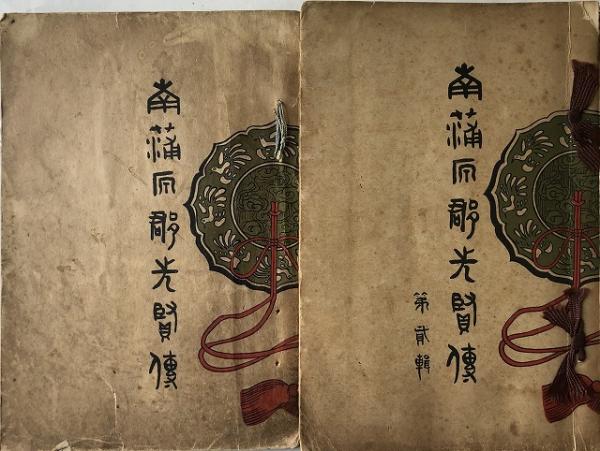 南蒲原郡先賢傳
南蒲原郡先賢傳
第貳輯